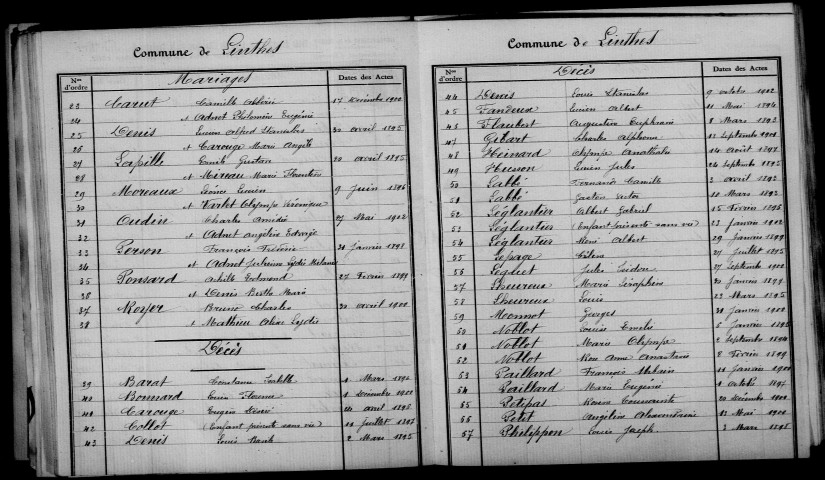 Commune de Linthes
Nos d'ordre
Mariages
Dates des Actes
23 Carut Camille 17 Décembre 1900
24 et Adnot Philomène Eugénie
25 Denis Lucien Alfred Stanislas 30 avril 1895
26 et Carouge Marie Angèle
27 Émile Gustave 20 avril 1895
28 et Marie
29 Moreaux Lucien 9 Juin 1896
30 et Varlet Olympe Véronique
31 Oudin Charles Amédée 27 Mai 1902
32 et Adnot Angéline Edwige
33 Person François 31 Janvier 1898
34 et Adnot Julienne
35 Ponsard Achille Edmond 27 Février 1899
36 et Denis Berthe Marie
37 Royer Bruno Charles 30 avril 1900
38 et Mathieu Lydie
Décès
39 Barat Constance 1 Mars
40 Bonnard 1 Décembre 1900
41 Carouge Eugène Désiré août 1898
42 Collot (Enfant présenté sans vie) Juillet 1897
43 Denis Louis 2 Mars 1895
Commune de Linthes
Nos d'ordre
Décès
Dates des Actes
44 Denis Louis Stanislas 9 octobre 1902
45 Fandeux Lucien Albert 11 Mai 1894
46 Flaubert Augustine Euphrasie 8 Mars 1893
47 Gibart Charles Alphonse 12 Septembre 1901
48 Heinard Olympe 14 Août 1897
49 Husson Lucien Jules 26 Septembre 1895
50 Labbé Fernande Camille 3 avril 1893
51 Labbé Gaston Victor 10 Mars 1892
52 Léglantier Albert Gabriel 15 Février 1895
53 Léglantier (Enfant présenté sans vie) 23 Janvier 1902
54 Léglantier Albert 29 Janvier 1899
55 Lepage 27 Juillet 1895
56 Jules Isidore 27 Septembre 1902
57 Lheureux Marie Séraphine 20 Janvier 1899
58 Lheureux Louis 23 Mars 1895
59 Monnot Georges 31 Janvier 1900
50 Noblot Louise Émélie 5 Janvier
51 Noblot Marie Olympe 2 Septembre 1894
52 Noblot Rose Anne 8 Février 1899
53 Paillard François 11 Janvier 1900
54 Paillard Marie Eugénie 1 octobre 1897
55 Petitpas Rosine 20 Décembre 1900
56 Petit Angéline Alexandrine 12 Mai 1900
57 Philippon Louis Joseph 3 Mars 1898